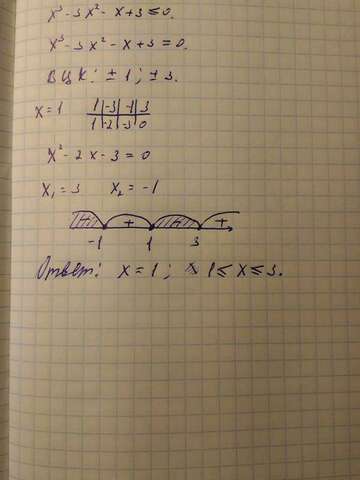 x³-3x²-x+3≤0.
x³-3x²-x+3=0.
ВЦК: ±1; ±3.
x=1 1 | -3 | -1 | 3
1 | -2 | -3 | 0
x²-2x-3=0
x₁=3 x₂=-1
+ +
-1 1 3
Ответ: x=1; 1≤x≤3.